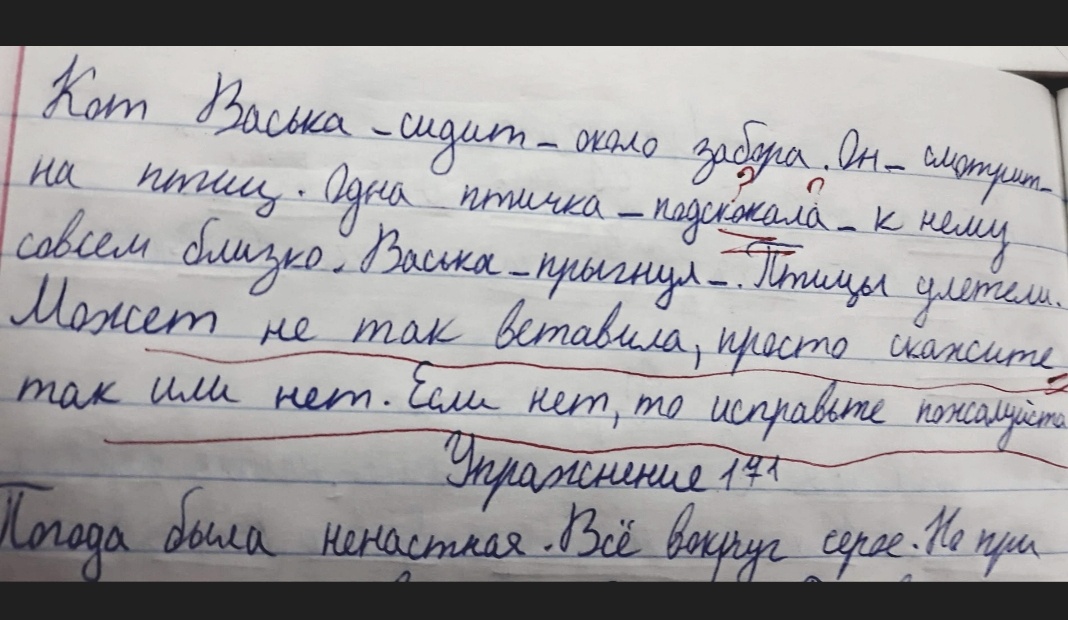 Кот Васька -сидит- около забора. Он- смотрит-
на птиц. Одна птичка -подскокала- к нему
совсем близко. Васька -прыгнул-. Птицы улетели.
Может не так вставила, просто скажите
так или нет. Если нет, то исправьте пожалуйста
Упражнение 171
Погода была ненастная. Всё вокруг серое. Но при